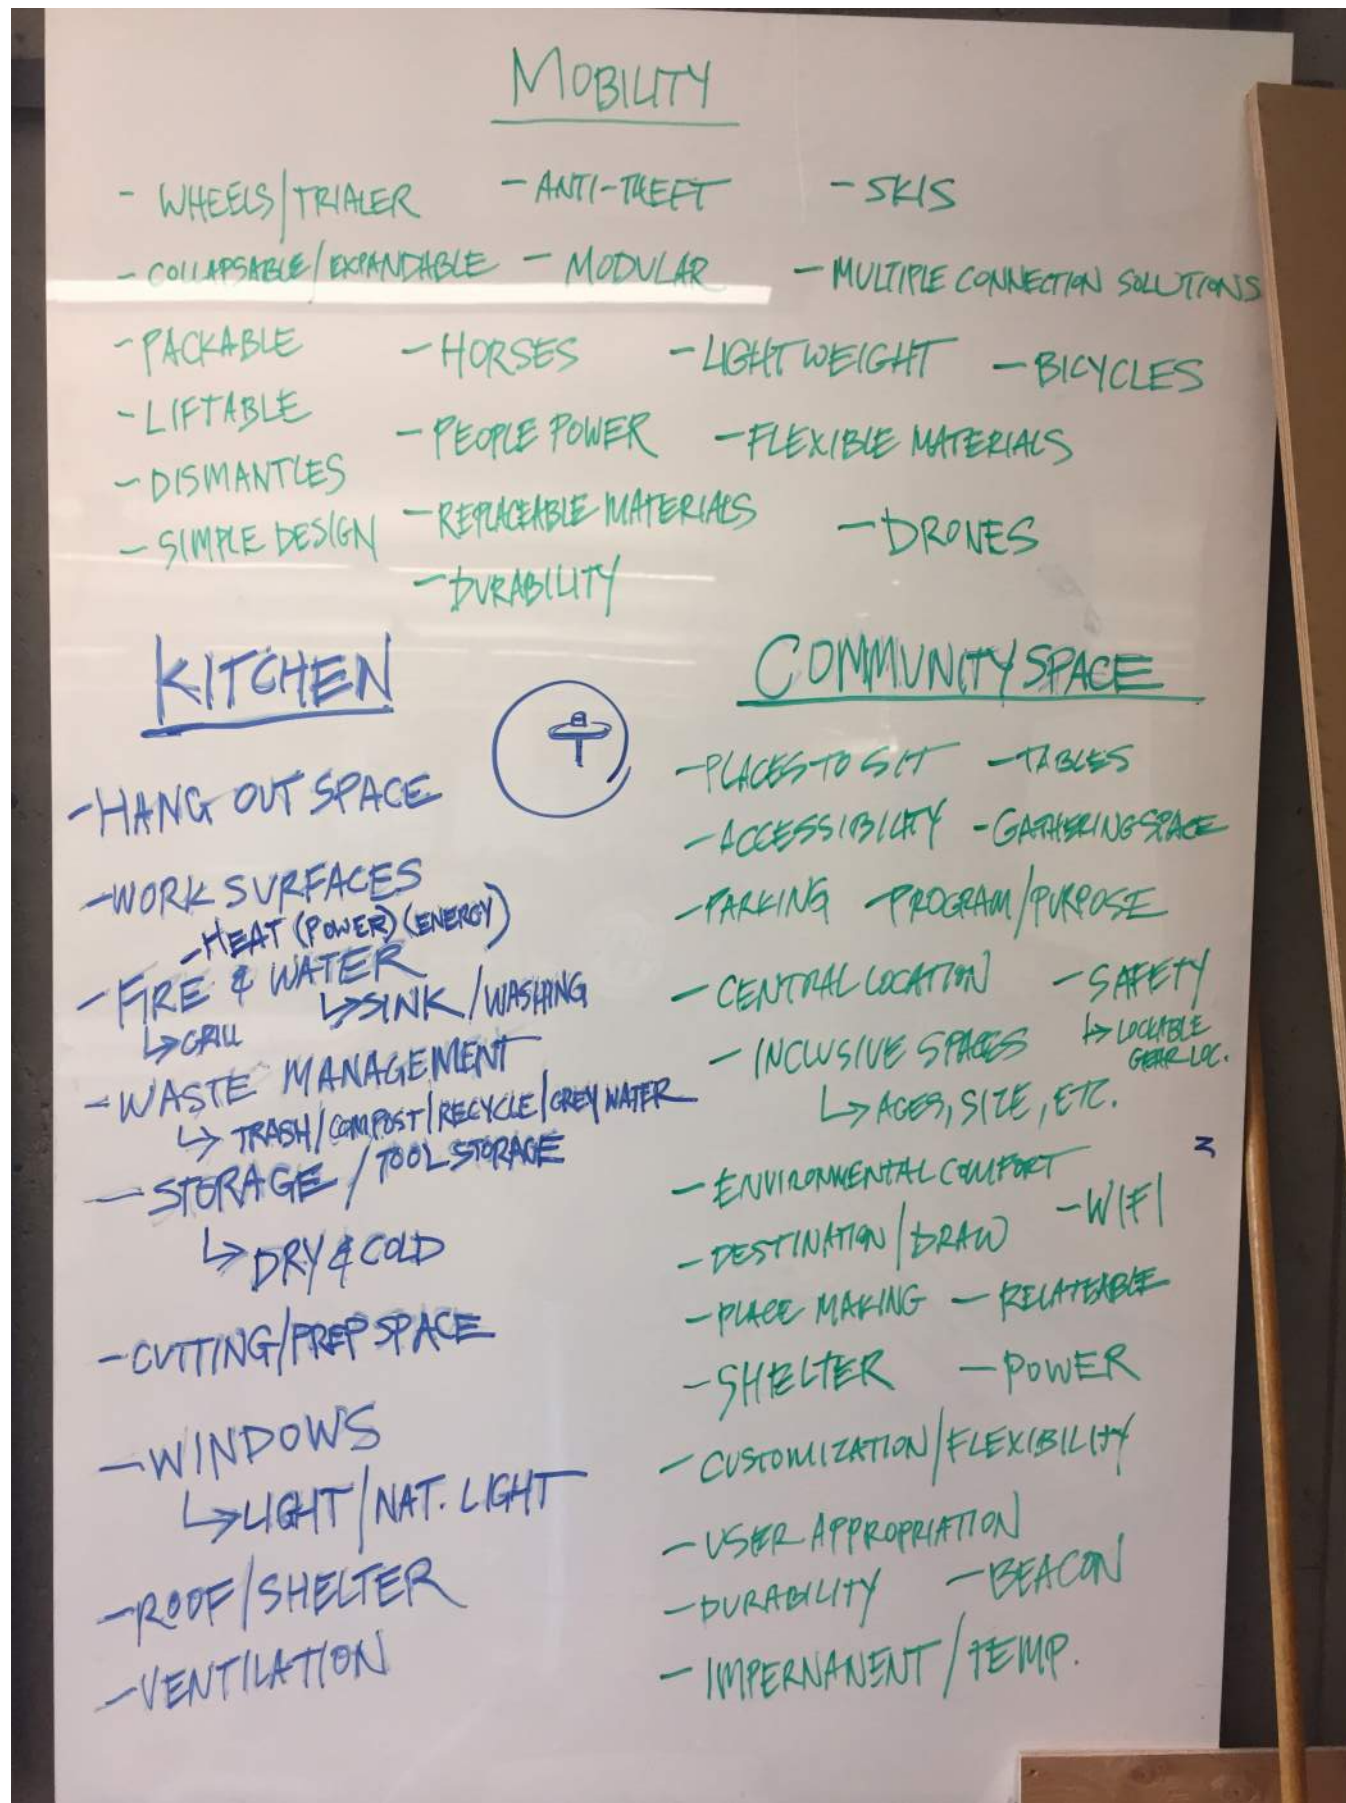 MOBILITY
- WHEELS/TRIALER - ANTI-THEFT - SKIS
- COLLAPSABLE/EXPANDABLE - MODULAR - MULTIPLE CONNECTION SOLUTIONS
- PACKABLE - HORSES - LIGHT WEIGHT - BICYCLES
- LIFTABLE - PEOPLE POWER - FLEXIBLE MATERIALS
- DISMANTLES
- SIMPLE DESIGN - REPLACEABLE MATERIALS - DRONES
- DURABILITY
KITCHEN
- HANG OUT SPACE
- WORK SURFACES
- HEAT (POWER) (ENERGY)
- FIRE & WATER
↳ SINK/WASHING
↳ GRILL
- WASTE MANAGEMENT
↳ TRASH/COMPOST/RECYCLE/GREY WATER
- STORAGE / TOOL STORAGE
↳ DRY & COLD
- CUTTING/PREP SPACE
- WINDOWS
↳ LIGHT/NAT. LIGHT
- ROOF/SHELTER
- VENTILATION
COMMUNITY SPACE
- PLACES TO SIT - TABLES
- ACCESSIBILITY - GATHERING SPACE
- PARKING - PROGRAM/PURPOSE
- CENTRAL LOCATION - SAFETY
↳ LOCKABLE
GEAR LOC.
- INCLUSIVE SPACES
↳ AGES, SIZE, ETC.
- ENVIRONMENTAL COMFORT
- WIFI
- DESTINATION/DRAW
- PLACE MAKING - RELATEABLE
- SHELTER - POWER
- CUSTOMIZATION/FLEXIBILITY
- USER APPROPRIATION
- DURABILITY - BEACON
- IMPERNANENT/TEMP.